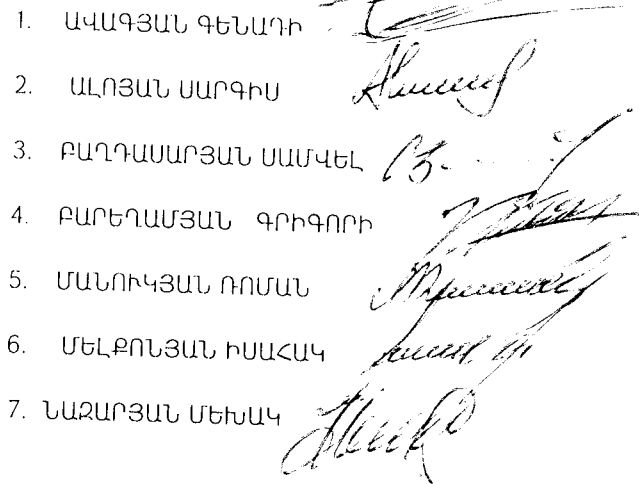 1. ԱՎԱԳՅԱՆ ԳԵՆԱԴԻ
2. ԱԼՈՅԱՆ ՍԱՐԳԻՍ
3. ԲԱՂԴԱՍԱՐՅԱՆ ՍԱՄՎԵԼ
4. ԲԱՐԵՂԱՄՅԱՆ ԳՐԻԳՈՐԻ
5. ՄԱՆՈՒԿՅԱՆ ՌՈՄԱՆ
6. ՄԵԼՔՈՆՅԱՆ ԻՍԱՀԱԿ
7. ՆԱԶԱՐՅԱՆ ՄԵԽԱԿ